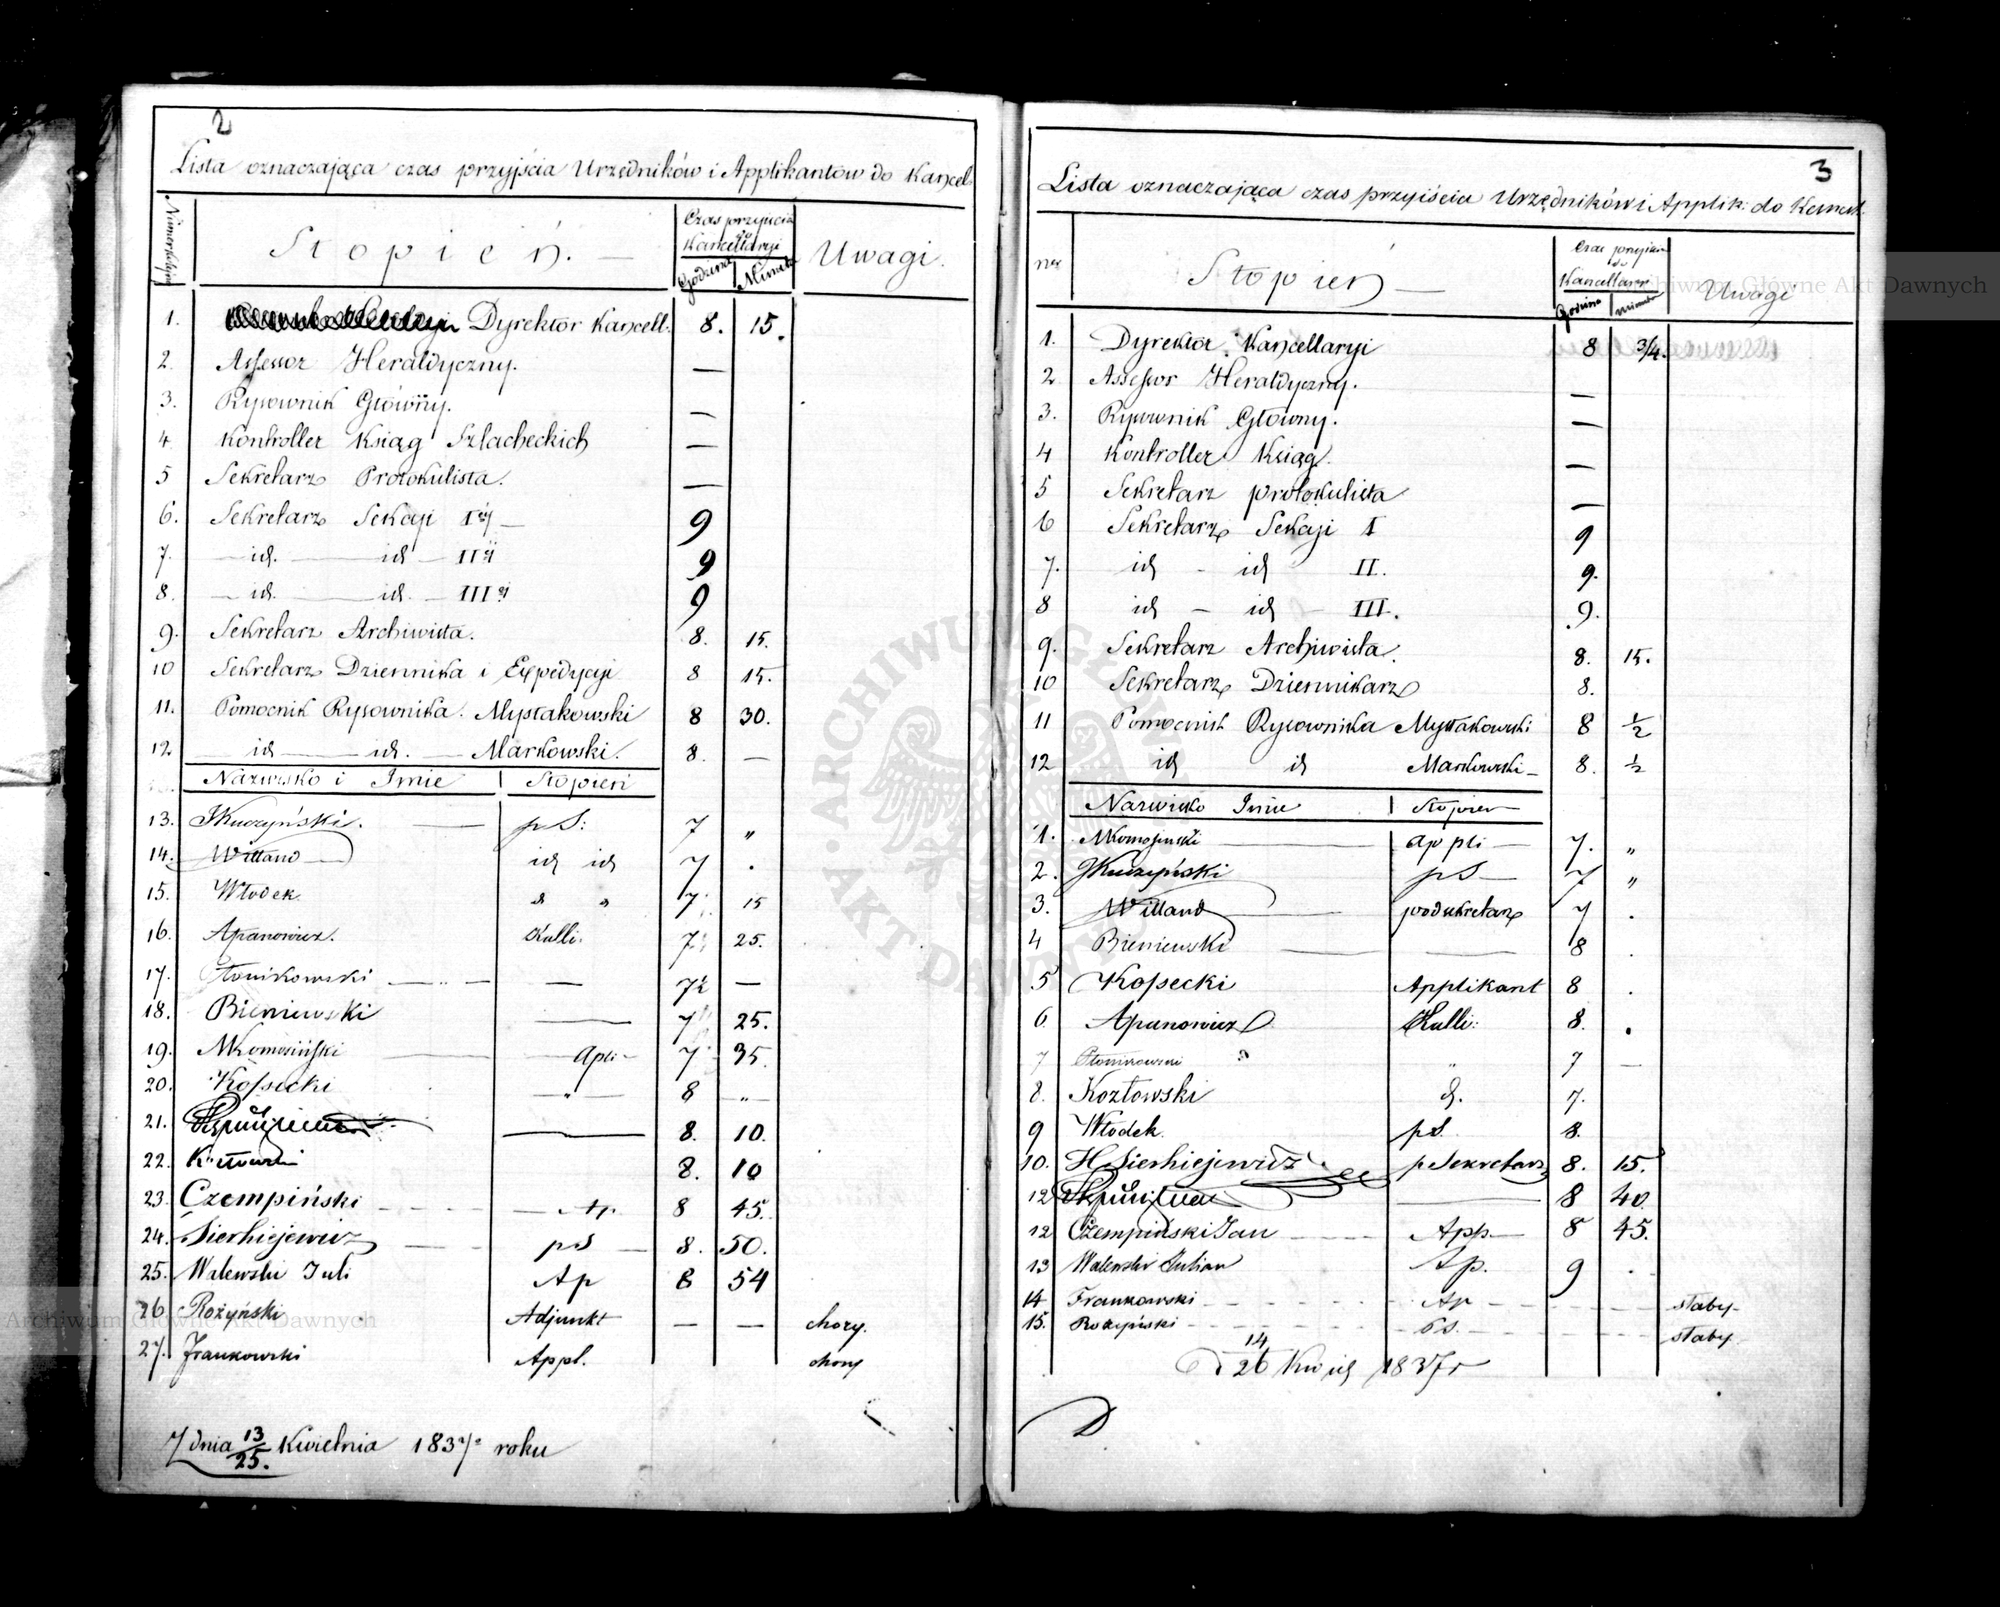 2
Lista oznaczająca czas przyjścia Urzędników i Applikantów do Kancel.
Numer kolejny
Stopień. —
Czas przyjścia do Kancellaryi
Godzina Minuta
Uwagi.
1. Dyrektor Kancell. 8. 15.
2. Assessor Heraldyczny. —
3. Rysownik Główny. —
4 Kontroller Ksiąg Szlacheckich —
5 Sekretarz Protokulista. —
6. Sekretarz Sekcyi I — 9
7. — id. — id — II 9
8. — id. — id. — III 9
9. Sekretarz Archiwista. 8. 15.
10 Sekretarz Dziennika i Expedycyi 8 15.
11. Pomocnik Rysownika. Mystakowski 8 30.
12 — id — id. — Markowski. 8. —
Nazwisko i Imie Stopień
13. JKuczyński. — pS: 7 "
14. Willand id id 7 .
15. Włodek " " 7 15
16. Apanowicz. Kalli. 7 25.
17. — " — — 7½ —
18. Bieniewski — 7 25.
19. Apli — 7 35.
20. Kossecki — " — 8 "
21. — 8. 10.
22. 8. 10
23. Czempiński — Ap. 8 45.
24. Sierhiejewicz — pS — 8. 50.
25. Walewski Juli Ap 8 54
26 Rożyński Adjunkt — — chory.
27. Frankowski Appl. chory
Z dnia 13/25. Kwietnia 1837º roku
3
Lista oznaczająca czas przyiścia Urzędników i Applik: do Kancel.
nr
Stopień —
Czas przyiścia do Kancellaryi
Godzina minuta
Uwagi
1. Dyrektor Kancellaryi 8 3/4.
2 Assessor Heraldyczny. —
3. Rysownik Główny. —
4 Kontroller Ksiąg. —
5 Sekretarz protokulista —
6 Sekretarz Sekcyi I 9
7. id - id II. 9.
8 id — id — III. 9.
9. Sekretarz Archiwista. 8. 15.
10 Sekretarz Dziennikarz 8.
11 Pomocnik Rysownika Mystakowski 8 ½
12 id id Markowski — 8. ½
Nazwisko Imie Stopień
1. appli — 7. "
2. JKuczyński pS — 7 "
3. Willand — podsekretarz 7 .
4 Bieniewski — — 8 .
5 Kossecki Applikant 8 .
6 Apanowicz Kalli: 8. .
7 " 7 —
8. Kozłowski d. 7.
9 Włodek. pS. 8.
10. HSierhiejewicz. pSekretarz 8. 15.
12 — 8 40.
12 Czempiński Jan — App — 8 45.
13 Walewski Julian Ap. 9 .
14 Frankowski — Ap — słaby —
15. Rożyński — PS. — słaby
d 14/26 Kwid 1837 r
D
Archiwum Główne Akt Dawnych
ARCHIWUM GŁÓWNE AKT DAWNYCH
Archiwum Główne Akt Dawnych